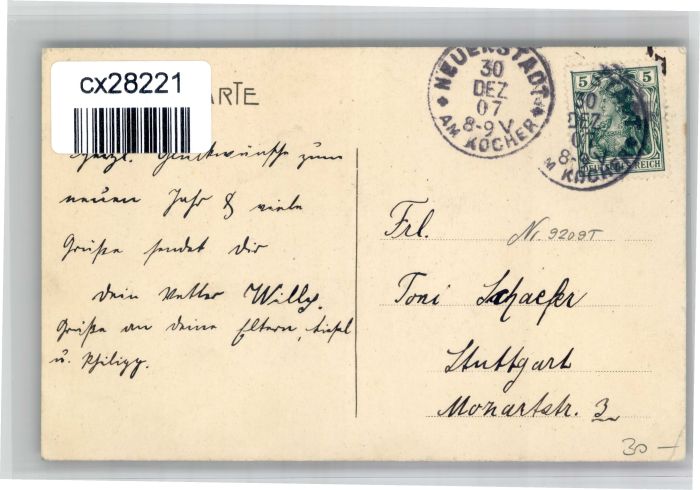 cx28221
ARTE
Herzl. Glückwünsche zum
neuen Jahr & viele
Grüße sendet Dir
Dein Vetter Willy.
Grüße an deine Eltern,
u. Philipp.
NEUENSTADT
30
DEZ
07
8-9 V
AM KOCHER
5 5
30
DEZ
8-9 V
AM KOCHER
REICH
Frl.
Nr. 9209T
Toni Schaefer
Stuttgart
Mozartstr. 3
30 —